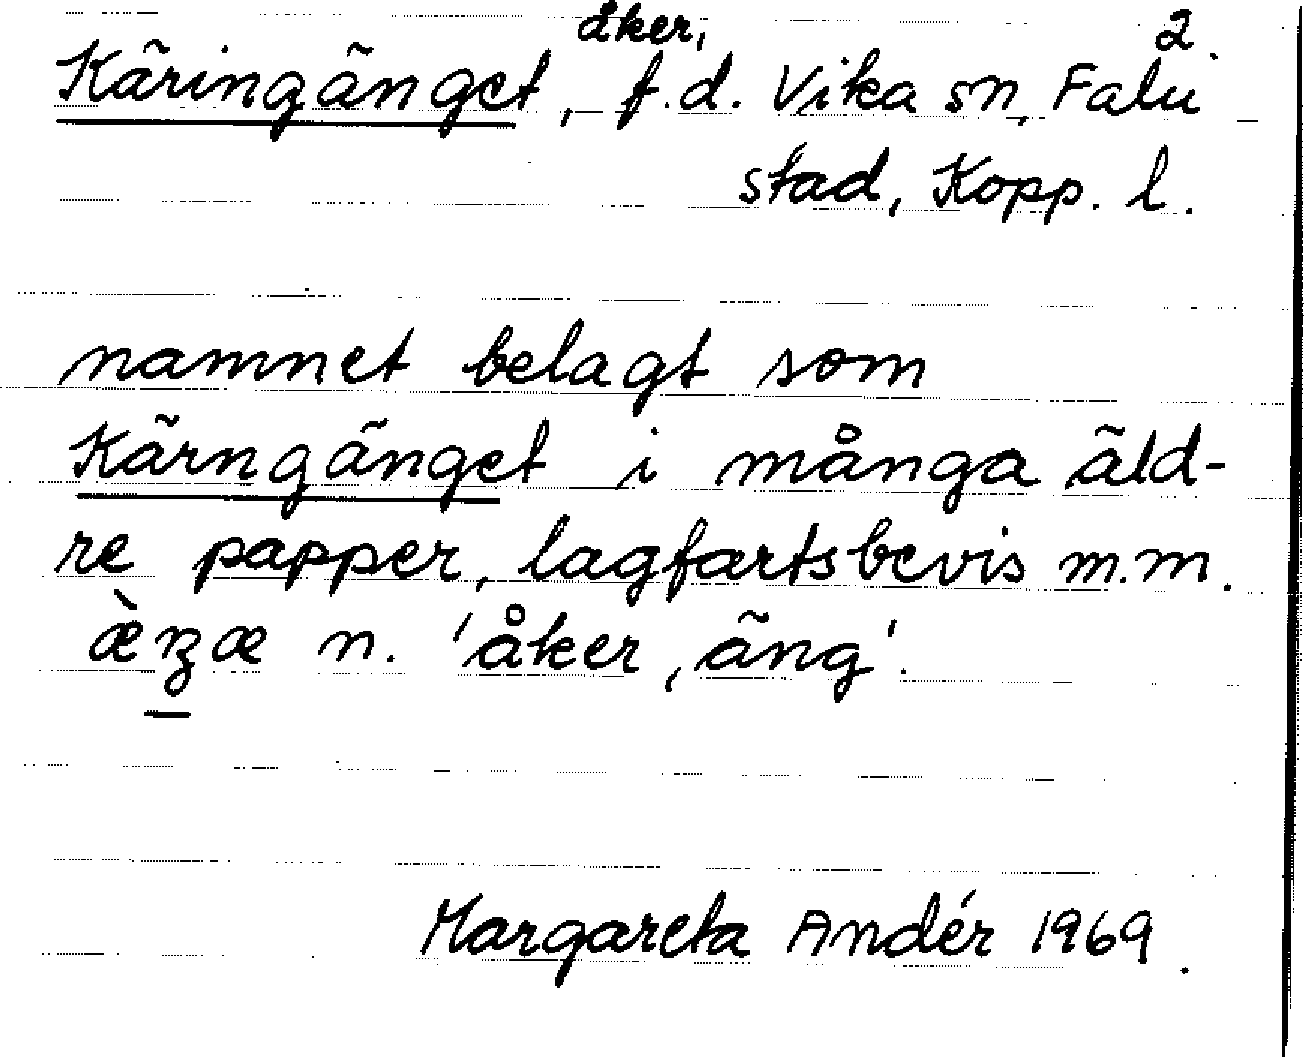 åker, 2.
Käringänget, f.d. Vika sn, Falu
stad, Kopp. l.
namnet belagt som
Kärngänget i många äld-
re papper, lagfartsbevis m.m.
æ̀ʒæ n. 'åker, äng'.
Margareta Andér 1969.